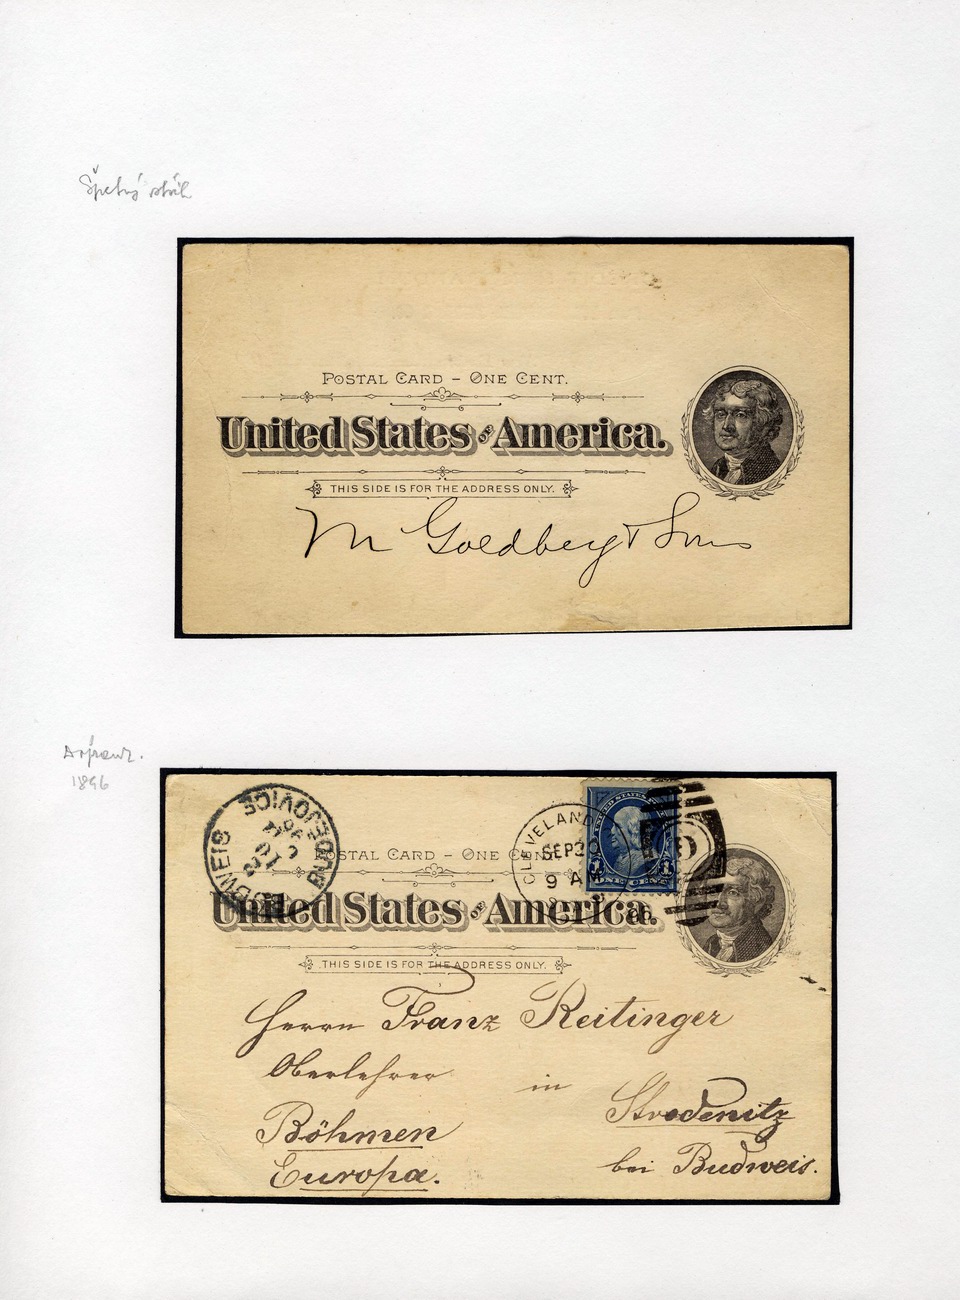 POSTAL CARD – ONE CENT.
United States of America.
THIS SIDE IS FOR THE ADDRESS ONLY.
M Goldberg & Sons
1896
BUDĚJOVICE
BUDWEIS
CLEVELAND
SEP 20
9 AM
UNITED STATES
1 ONE CENT 1
POSTAL CARD – ONE CENT.
United States of America.
THIS SIDE IS FOR THE ADDRESS ONLY.
Herrn Franz Reitinger
Oberlehrer in Strodenitz
Böhmen bei Budweis.
Europa.